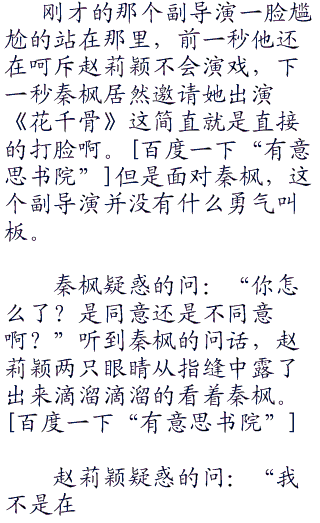 刚才的那个副导演一脸尴
尬的站在那里，前一秒他还
在呵斥赵莉颖不会演戏，下
一秒秦枫居然邀请她出演
《花千骨》这简直就是直接
的打脸啊。[百度一下“有意
思书院”]但是面对秦枫，这
个副导演并没有什么勇气叫
板。
秦枫疑惑的问：“你怎
么了？是同意还是不同意
啊？”听到秦枫的问话，赵
莉颖两只眼睛从指缝中露了
出来滴溜滴溜的看着秦枫。
[百度一下“有意思书院”]
赵莉颖疑惑的问：“我
不是在